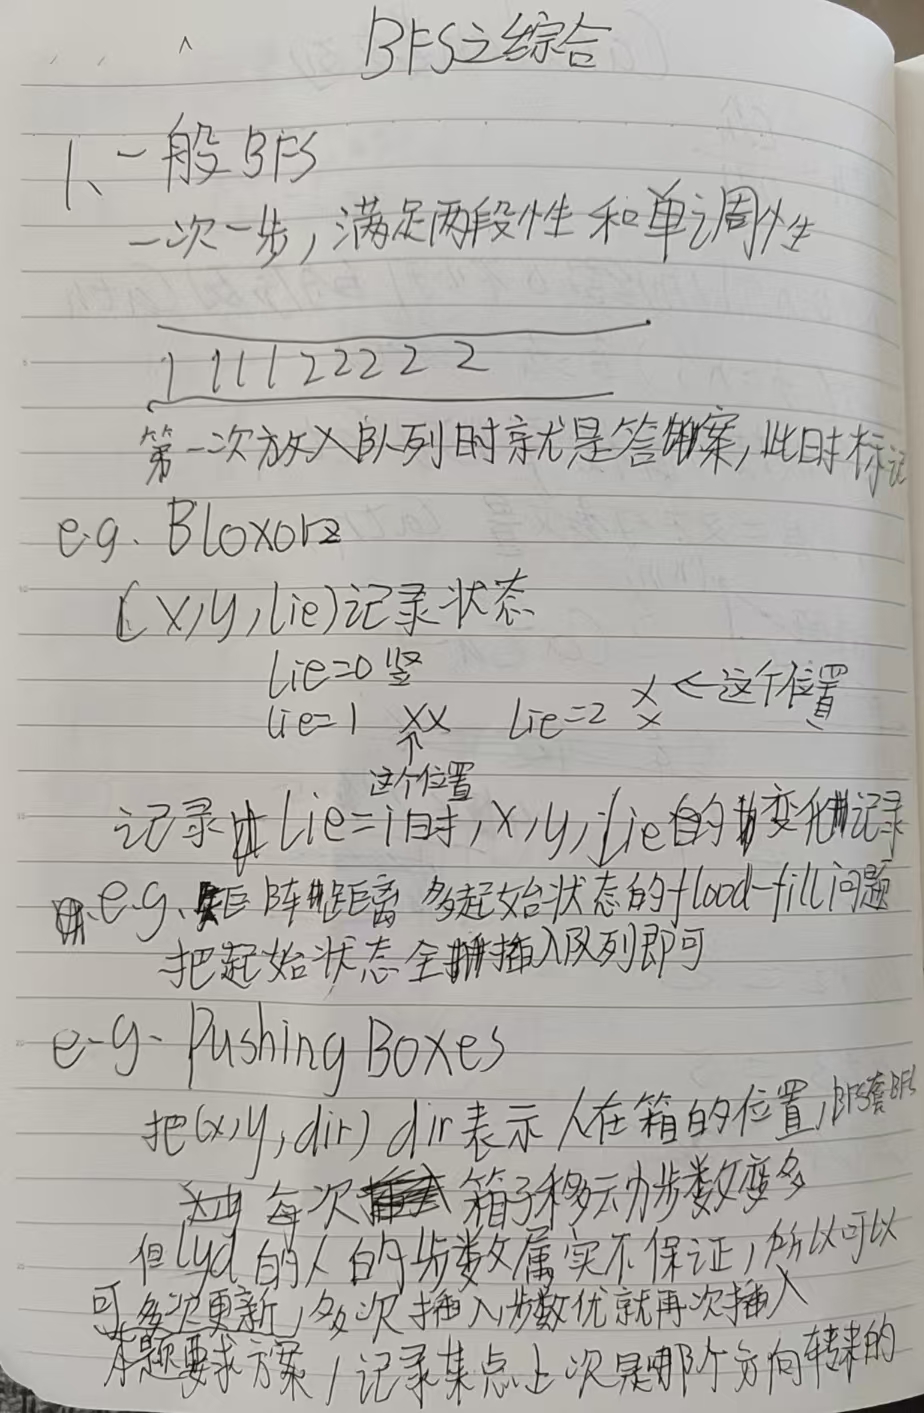 BFS之综合
1、一般BFS
一次一步,满足两段性和单调性
1 1 1 1 2 2 2 2 2
第一次放入队列时就是答案,此时标记
e.g. Bloxorz
(x,y,lie)记录状态
lie=0 竖
lie=1 xx lie=2 x ←这个位置
x
↑
这个位置
记录 lie=i时,x,y,lie的变化记录
e.g. 矩阵距离 多起始状态的flood-fill问题
把起始状态全插入队列即可
e.g. Pushing Boxes
把(x,y,dir) dir表示人在箱的位置,BFS套BFS
每次 箱子移动步数变多
但lyd的人的步数属实不保证,所以可以
可多次更新,多次插入,步数优就再次插入
本题要求方案,记录某点上次是哪个方向转来的